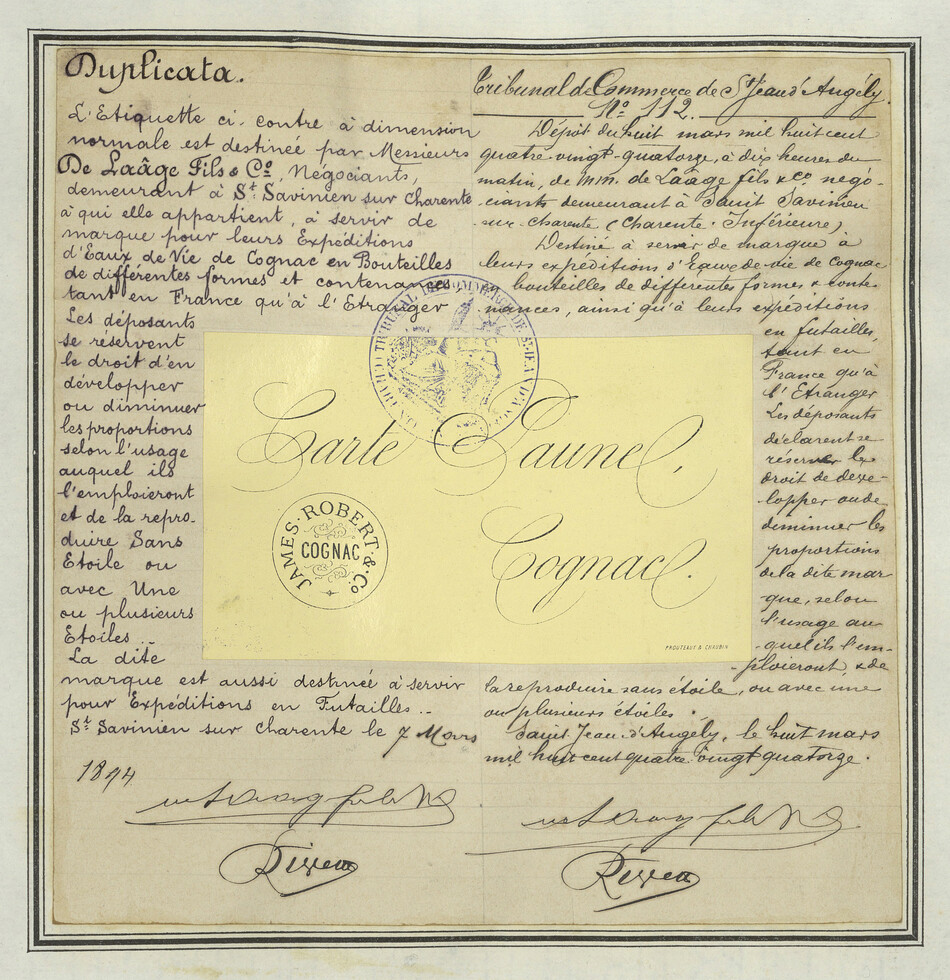 Duplicata.
L'Etiquette ci-contre à dimension
normale est destinée par Messieurs
De Laâge Fils & Cº, Négociants,
demeurant à Sᵗ Savinien sur Charente
à qui elle appartient, à servir de
marque pour leurs Expéditions
d'Eaux de Vie de Cognac en Bouteilles
de différentes formes et contenances
tant en France qu'à l'Etranger
Les déposants
se réservent
le droit d'en
développer
ou diminuer
les proportions
selon l'usage
auquel ils
l'emploieront
et de la repro-
duire Sans
Etoile ou
avec Une
ou plusieurs
Etoiles..
La dite
marque est aussi destinée à servir
pour Expéditions en Futailles..
Sᵗ Savinien sur Charente le 7 Mars
1894
Tribunal de Commerce de Sᵗ Jean d'Angély.
Nº 112.
Dépôt du huit mars mil huit cent
quatre-vingt-quatorze, à dix heures du
matin, de MM. de Laâge fils & Cº négo-
ciants demeurant à Saint Savinien
sur Charente (Charente Inférieure)
Destiné à servir de marque à
leurs expéditions d'Eaux de vie de Cognac
en bouteilles de différentes formes & conte-
nances, ainsi qu'à leurs expéditions
en futailles,
tant en
France qu'à
l'Etranger
Les déposants
déclarent se
réserver le
droit de déve-
lopper ou de
diminuer les
proportions
de la dite mar
que, selon
l'usage au-
quel ils l'em-
-ploieront, & de
la reproduire sans étoile, ou avec une
ou plusieurs étoiles.
Saint Jean d'Angély, le huit mars
mil huit cent quatre vingt quatorze.
TRIBUNAL DE COMMERCE DE Sᵗ JEAN D'ANGELY
Carte Jaune.
JAMES·ROBERT·&·Cº
COGNAC
Cognac.
PROUTEAUX & CHAUBIN